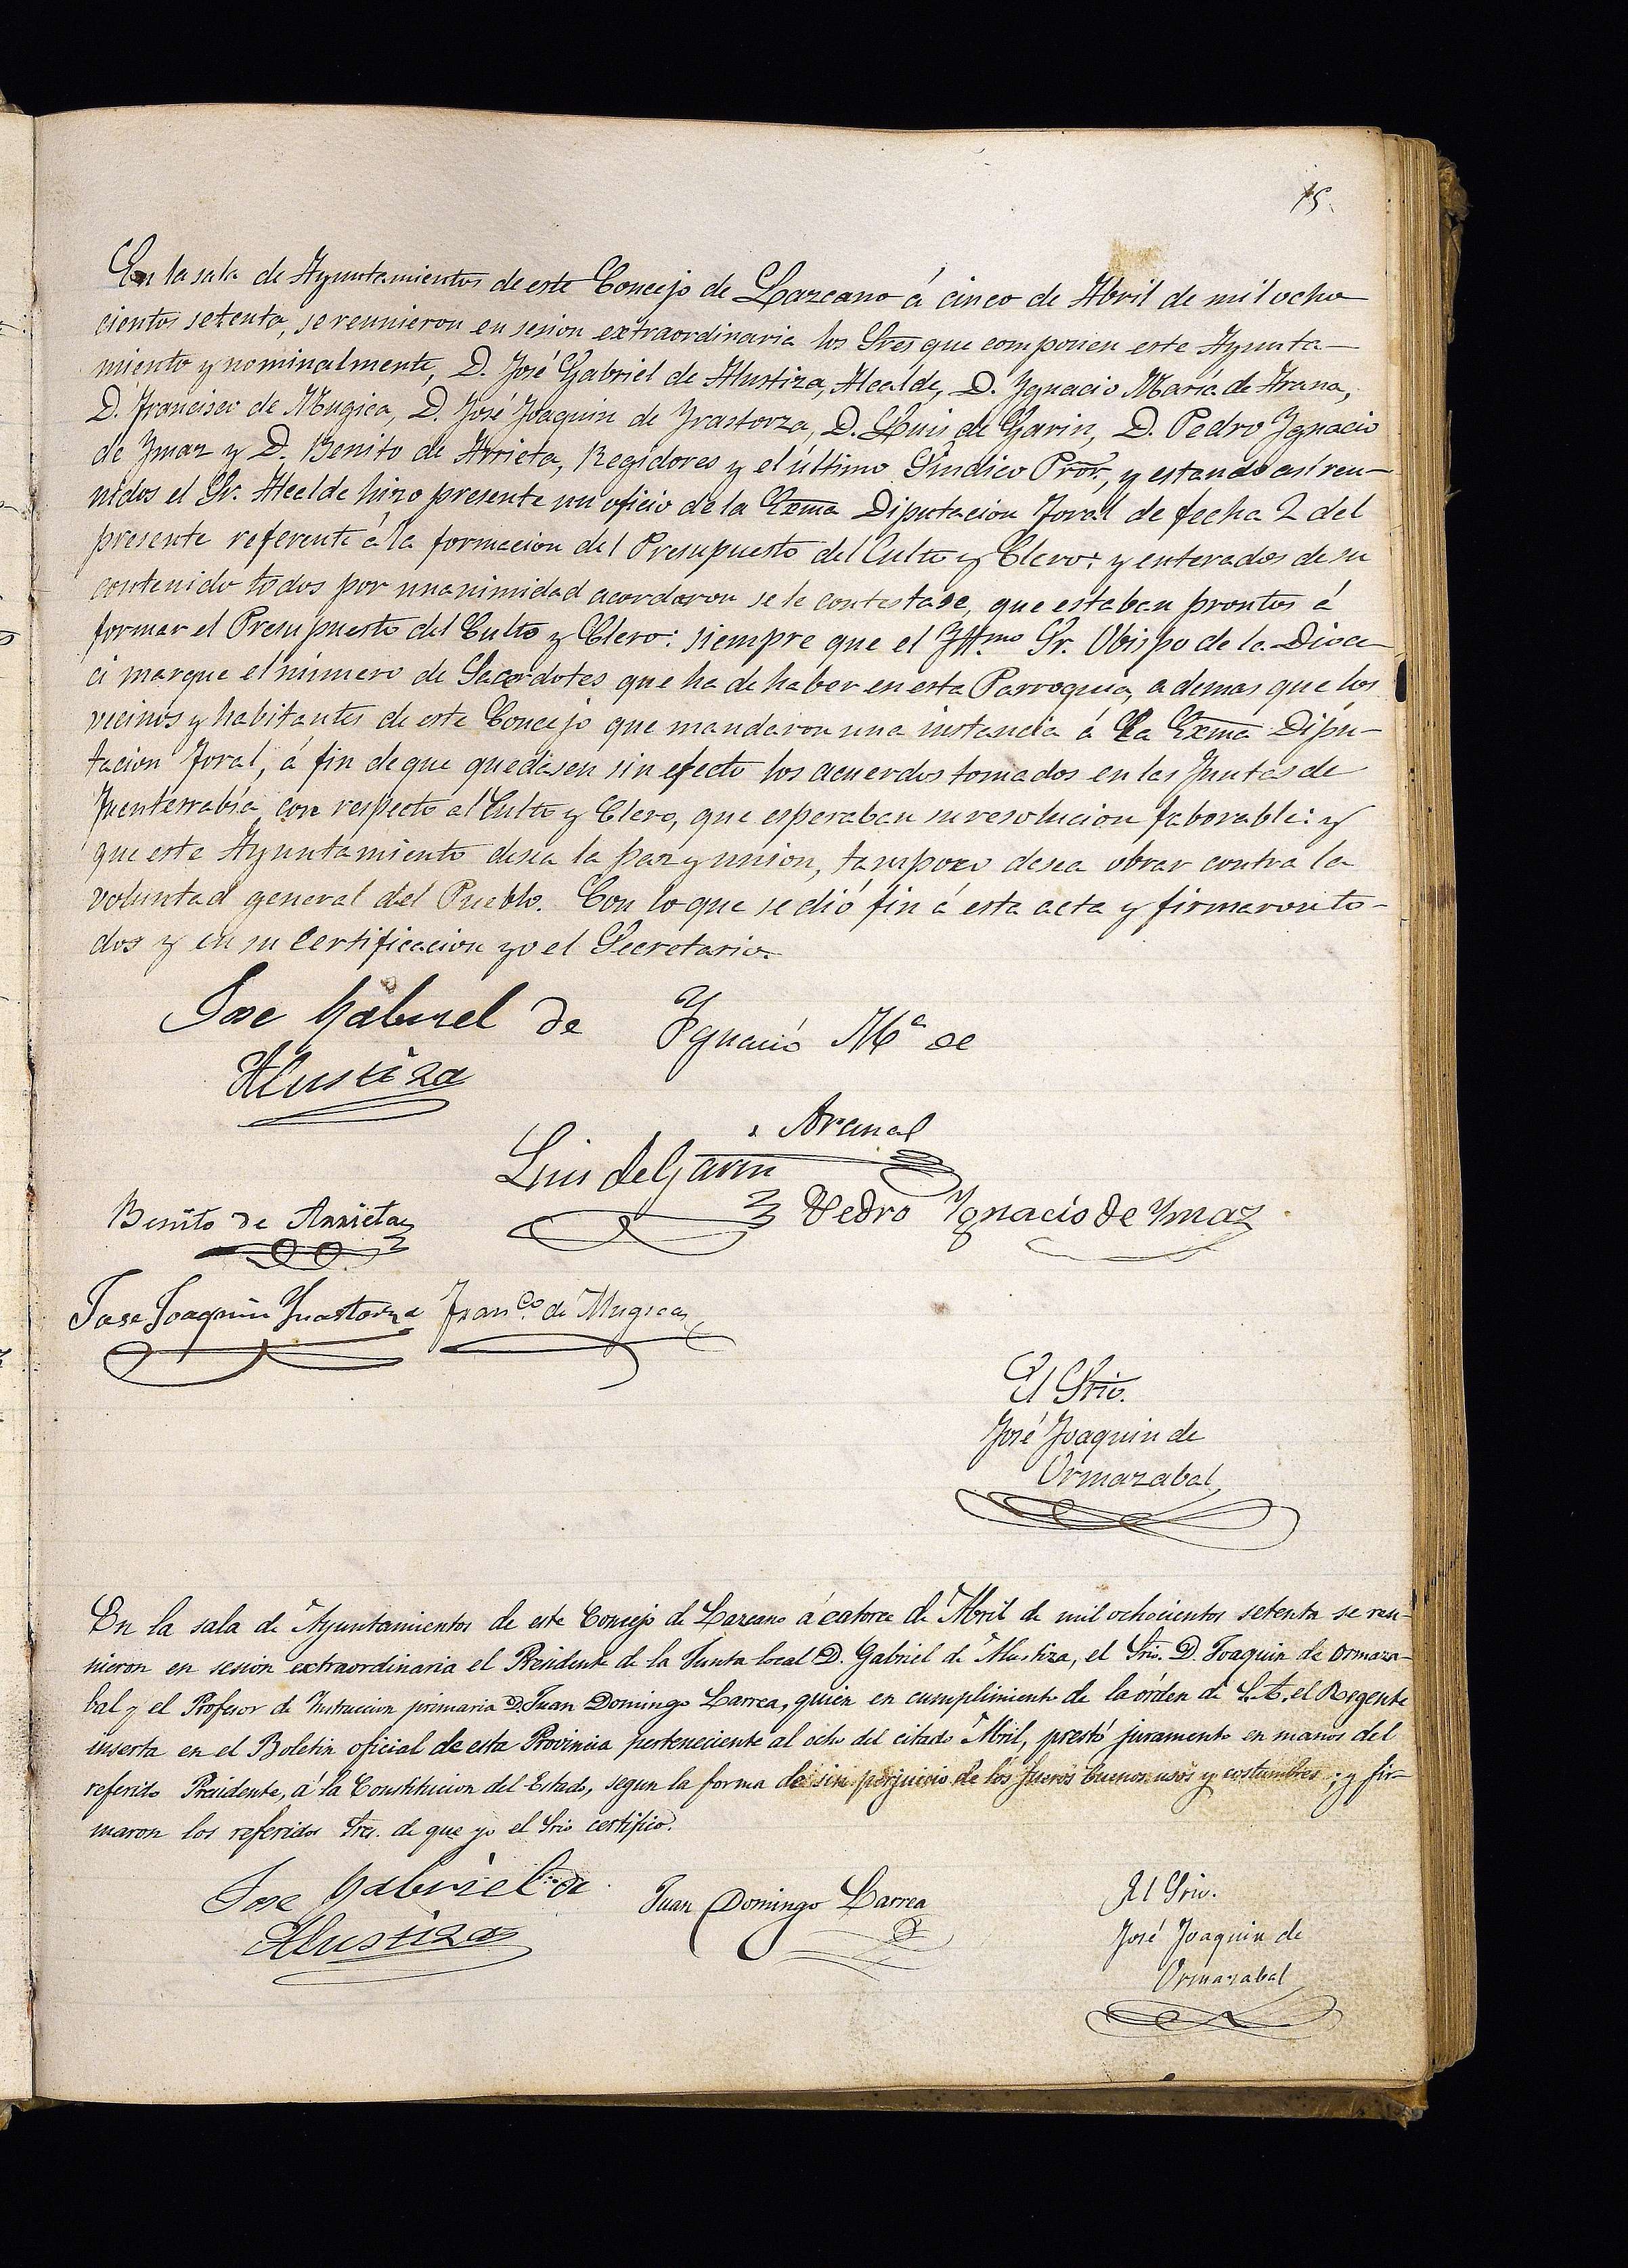 15.
En la sala de Ayuntamientos de este Concejo de Lazcano á cinco de Abril de mil ocho
cientos setenta, se reunieron en sesion extraordinaria los Sres que componen este Ayunta-
miento y nominalmente, D. José Gabriel de Alustiza, Alcalde, D. Ygnacio María de Arana,
D. Francisco de Mugica, D. José Joaquin de Yrastorza, D. Luis de Garin, D. Pedro Ygnacio
de Ymaz y D. Benito de Arrieta, Regidores y el último Síndico Pror., y estando así reu-
nidos el Sr. Alcalde hizo presente un oficio de la Exma Diputacion Foral de fecha 2 del
presente referente á la formacion del Presupuesto del Culto y Clero: y enterados de su
contenido todos por unanimidad acordaron se le contestase, que estaban prontos á
formar el Presupuesto del Culto y Clero: siempre que el Yltmo Sr. Obispo de la Dioce
ci marque el número de Sacerdotes que ha de haber en esta Parroquia, ademas que los
vecinos y habitantes de este Concejo que mandaron una instancia á la Exma Dipu-
tacion Foral, á fin de que quedasen sin efecto los acuerdos tomados en las Juntas de
Fuenterrabía con respecto al Culto y Clero, que esperaban su resolucion faborable: y
que este Ayuntamiento desea la paz y union, tampoco desea obrar contra la
voluntad general del Pueblo. Con lo que se dió fin á esta acta y firmaron to-
dos y en su certificacion yo el Secretario.
Jose Gabriel de
Alustiza
Ygnacio Ma de
Arana
Luis de Garin
Benito de Arrieta
Pedro Ygnacio de Ymaz
Jose Joaquin Yrastorza
Franco. de Mugica
El Srio.
José Joaquin de
Ormazabal
En la sala de Ayuntamientos de este Concejo de Lazcano á catorce de Abril de mil ochocientos setenta se reu-
nieron en sesion extraordinaria el Presidente de la Junta local D. Gabriel de Alustiza, el Srio. D. Joaquin de Ormaza-
bal y el Profesor de Instruccion primaria D. Juan Domingo Larrea, quien en cumplimiento de la órden de S.A. el Regente
inserta en el Boletin oficial de esta Provincia perteneciente al ocho del citado Abril, prestó juramento en manos del
referido Presidente, á la Constitucion del Estado, segun la forma de sin perjuicio de los fueros buenos usos y costumbres; y fir-
maron los referidos Sres. de que yo el Srio certifico.
Jose Gabriel de
Alustiza
Juan Domingo Larrea
El Srio.
José Joaquin de
Ormazabal